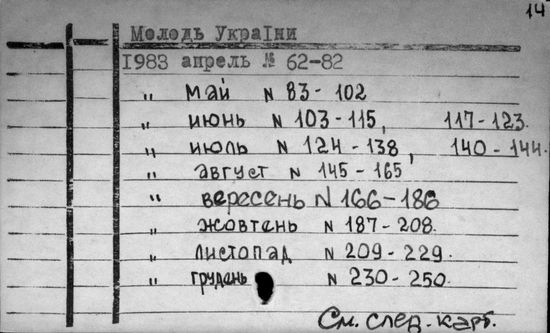 14
Молодь України
1983 апрель № 62-82
" май N 83-102
" июнь N 103-115, 117-123.
" июль N 124-138, 140-144.
" август N 145-165
" вересень N 166-186
" жовтень N 187-208.
" листопад N 209-229.
" грудень N 230-250.
См. след. карт.